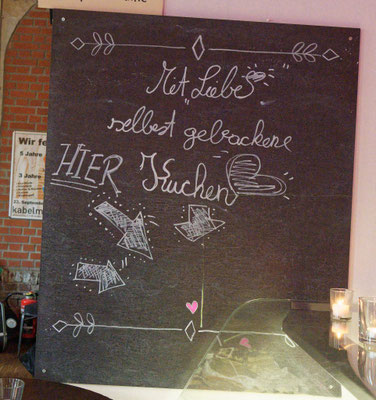 "Mit Liebe"
selbst gebackene
HIER Kuchen
Wir fe
5 Jahre
3 Jahre
kabelm